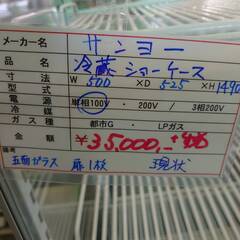 メーカー名 サンヨー
品名 冷蔵ショーケース
寸法 W 500 × D 525 × H 1490
型式
電源 単相100V ・ 200V / 3相200V
冷媒
ガス種 都市G ・ LPガス
金額 ¥35,000.-
備考 五面ガラス 扉1枚 現状